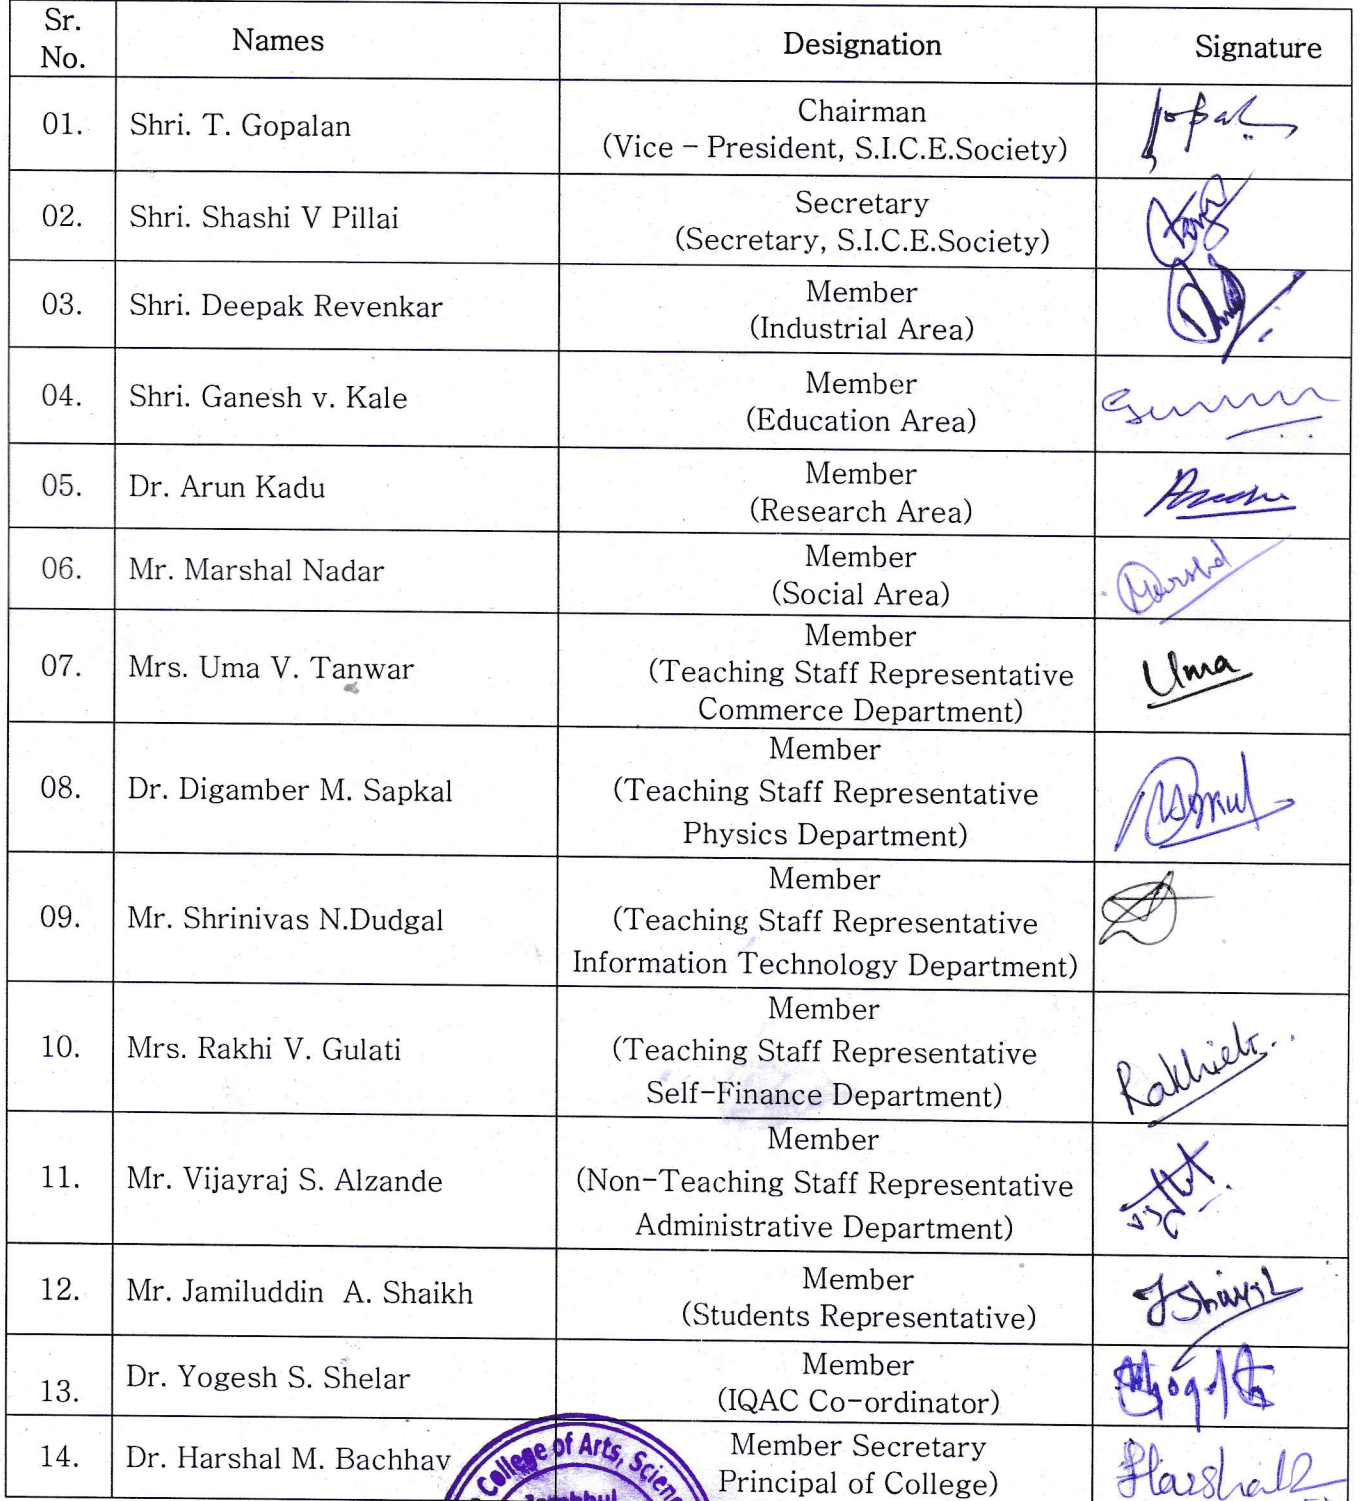 Sr. No. Names Designation Signature
01. Shri. T. Gopalan Chairman
(Vice – President, S.I.C.E.Society)
02. Shri. Shashi V Pillai Secretary
(Secretary, S.I.C.E.Society)
03. Shri. Deepak Revenkar Member
(Industrial Area)
04. Shri. Ganesh v. Kale Member
(Education Area)
05. Dr. Arun Kadu Member
(Research Area)
06. Mr. Marshal Nadar Member
(Social Area)
Marshal
07. Mrs. Uma V. Tanwar Member
(Teaching Staff Representative
Commerce Department)
Uma
08. Dr. Digamber M. Sapkal Member
(Teaching Staff Representative
Physics Department)
09. Mr. Shrinivas N.Dudgal Member
(Teaching Staff Representative
Information Technology Department)
10. Mrs. Rakhi V. Gulati Member
(Teaching Staff Representative
Self-Finance Department)
11. Mr. Vijayraj S. Alzande Member
(Non-Teaching Staff Representative
Administrative Department)
12. Mr. Jamiluddin A. Shaikh Member
(Students Representative)
13. Dr. Yogesh S. Shelar Member
(IQAC Co-ordinator)
14. Dr. Harshal M. Bachhav Member Secretary
Principal of College)
College of Arts,